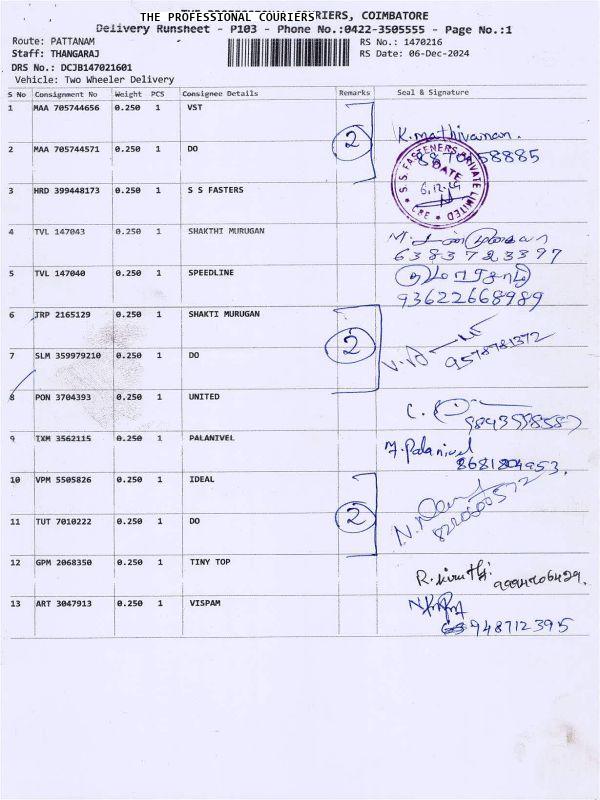 THE PROFESSIONAL COURIERS, COIMBATORE
Delivery Runsheet - P103 - Phone No.:0422-3505555 - Page No.:1
Route: PATTANAM RS No.: 1470216
Staff: THANGARAJ RS Date: 06-Dec-2024
DRS No.: DCJB147021601
Vehicle: Two Wheeler Delivery
S No Consignment No Weight PCS Consignee Details Remarks Seal & Signature
1 MAA 705744656 0.250 1 VST
K. mathivanan.
2 MAA 705744571 0.250 1 DO 2
S.S. FASTENERS PRIVATE LIMITED
DATE
6.12.24
CBE
3 HRD 399448173 0.250 1 S S FASTERS
4 TVL 147043 0.250 1 SHAKTHI MURUGAN
6383723397
5 TVL 147040 0.250 1 SPEEDLINE
93622668989
6 TRP 2165129 0.250 1 SHAKTI MURUGAN
7 SLM 359979210 0.250 1 DO 2
9578781372
8 PON 3704393 0.250 1 UNITED
9 TXM 3562115 0.250 1 PALANIVEL M. Palanivel
8681804953.
10 VPM 5505826 0.250 1 IDEAL
11 TUT 7010222 0.250 1 DO 2
12 GPM 2068350 0.250 1 TINY TOP
13 ART 3047913 0.250 1 VISPAM
9487123915